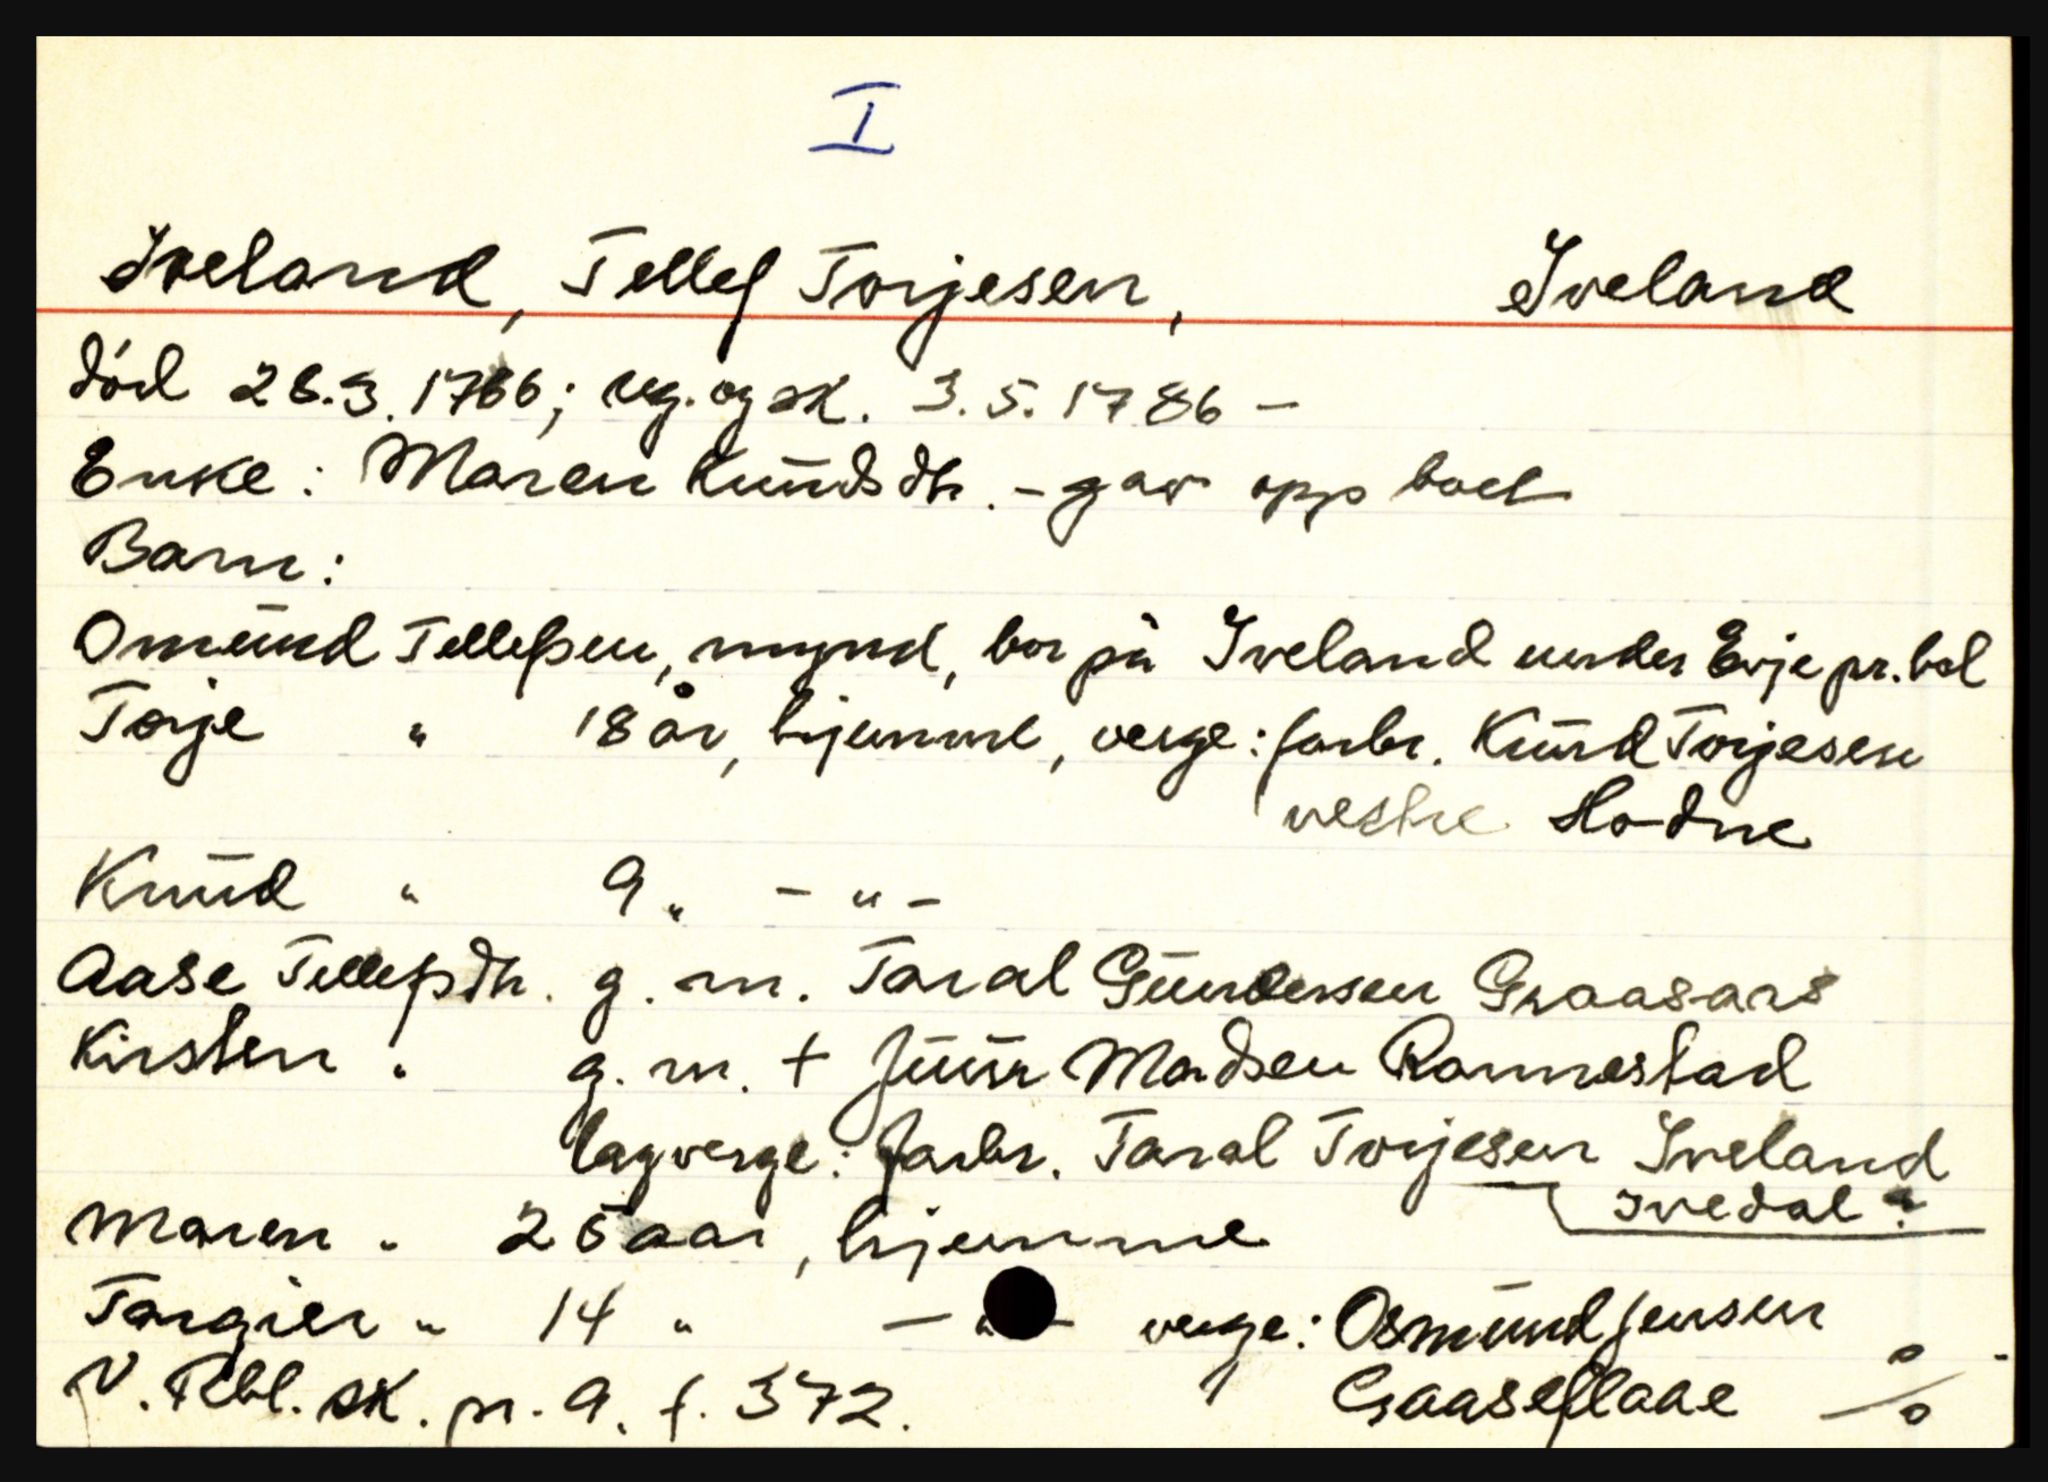 I
Iveland, Tellef Torjesen, Iveland
død 28.3.1786; reg. og sk. 3.5.1786 -
Enke: Maren Knudsdtr. - gav opp boet
Barn:
Omund Tellefsen, mynd, bor på Iveland under Evje pr.bol
Torje " 18 år, hjemme, verge: farbr. Knud Torjesen
vestre Hodne
Knud " 9 " - " -
Aase Tellefsdtr. g. m. Taral Gundersen Graasars
Kirsten " g. m. + Juur Madsen Rannestad
lagverge: farbr. Taral Torjesen Iveland
Ivedal?
Maren " 25 aar, hjemme
Torgier " 14 " - " - verge: Osmund Jensen
N. Rbl. sk. pr. 9. f. 372. Gaaseflaae %